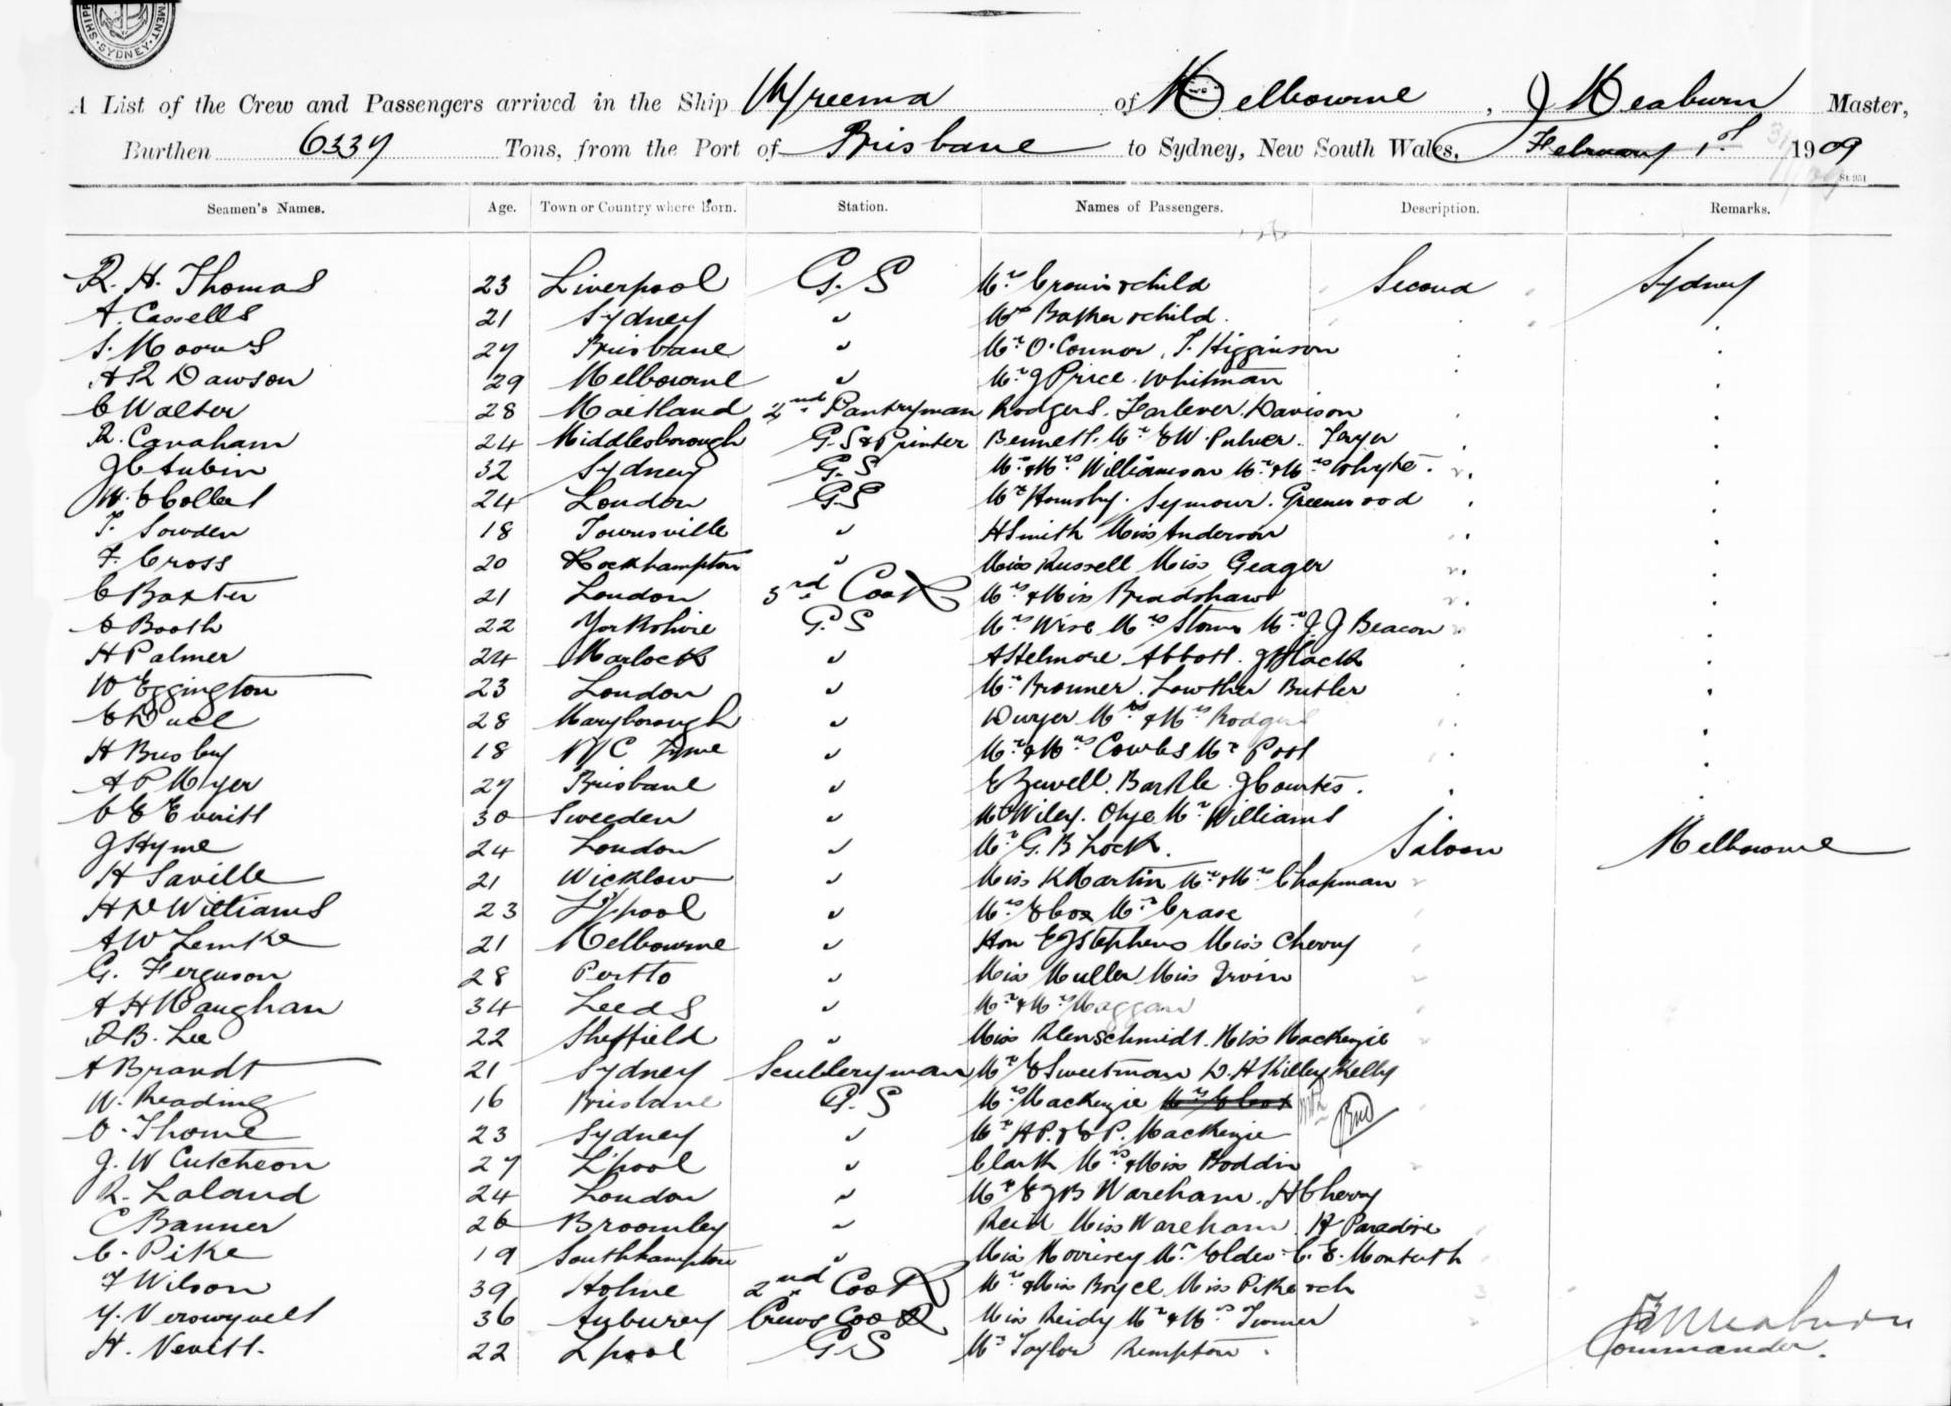 SHIPP MENT SYDNEY
A List of the Crew and Passengers arrived in the Ship Wyreema of Melbourne, J Meaburn Master,
Burthen 6339 Tons, from the Port of Brisbane to Sydney, New South Wales, February 1st 1909
St 951
Seamen's Names. Age. Town or Country where Born. Station. Names of Passengers. Description. Remarks.
R. H. Thomas 23 Liverpool G. S Mrs Cronin & child Second Sydney
A. Cassells 21 Sydney " Mrs Bather & child.
S. Moores 27 Brisbane " Mr O'Connor, T. Higginson
A R Dawson 29 Melbourne " Mr J Price. Whitman
C Walter 28 Maitland 2nd Pantryman Rodgers. Farlever. Davison
R. Canaham 24 Middlesborough G. S & Printer Bennett. Mr E W. Pulver.
J C Aubin 32 Sydney G. S Mr & Mrs Williamson Mr & Mrs Whyte.
W. E Collert 24 London G S Mr Hornsby. Seymour. Greenwood
T. Sowden 18 Townsville " H Smith Miss Anderson
F. Cross 20 Rockhampton " Miss Russell Miss Geager
C Baxter 21 London 3rd Cook Mrs & Miss Bradshaw
C Booth 22 Yorkshire G. S Mrs Wise Mrs Storm Mr J. J Beacon
H Palmer 24 Marlock " A Helmore Abbott. J Black
W Eggington 23 London " Mr Bronner. Lowther Butler
E Duel 28 Maryborough " Dwyer Mr & Mrs Rodgers
H Busby 18 N/C Tyne " Mr & Mrs Cowles Mr Post
A P Myer 27 Brisbane " E Zewell. Barkle. J Courtes.
C E Everitt 30 Sweeden " McWiley. Olye Mr Williams
J Hyme 24 London " Mr G. B Lock. Saloon Melbourne
H Saville 21 Wicklow " Miss K Martin Mr & Mrs Chapman
H N Williams 23 L'pool " Mrs E Cox Mr Crase
A W Lemke 21 Melbourne " Hon E J Stephens Miss Cherry
G. Ferguson 28 Portto " Miss Muller Miss Irvin
A H Maughan 34 Leeds " Mr & Mrs Maggan
A B. Lee 22 Sheffield " Miss Kleinschmidt. Miss Mackenzie
A Brandt 21 Sydney Sculleryman Mr E Sweetman D. H Killey Kelly
W. Reading 16 Brisbane G. S Mrs Mackenzie Mrs E Cox
O. Thome 23 Sydney " Mr H P. & E P. Mackenzie
J. W Cutcheon 27 L'pool " Clark Mrs & Miss Boddin
R. Laland 24 London " Mr E J B Wareham. H Cherry
C Banner 26 Broomley " Reid Miss Wareham H Paradise
C. Pike 19 Southhampton " Miss Morrisey Mr Elder C. E. Monteith
F Wilson 39 Holme 2nd Cook Mrs & Miss Boyce Miss Pike & ch
Y. Verowyvell 36 Auburey Crews Cook Miss Reidy Mr & Mrs Turner
H. Nevitt. 22 Lpool G. S Mr Taylor Rempton.
J Meaburn
Commander.